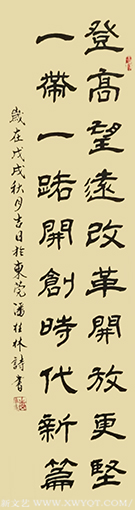 登高望遠改革開放更堅
一帶一路開創時代新篇
歲在戊戌秋月吉日於東莞潘桂林詩書
新文艺 WWW.XWYOT.COM